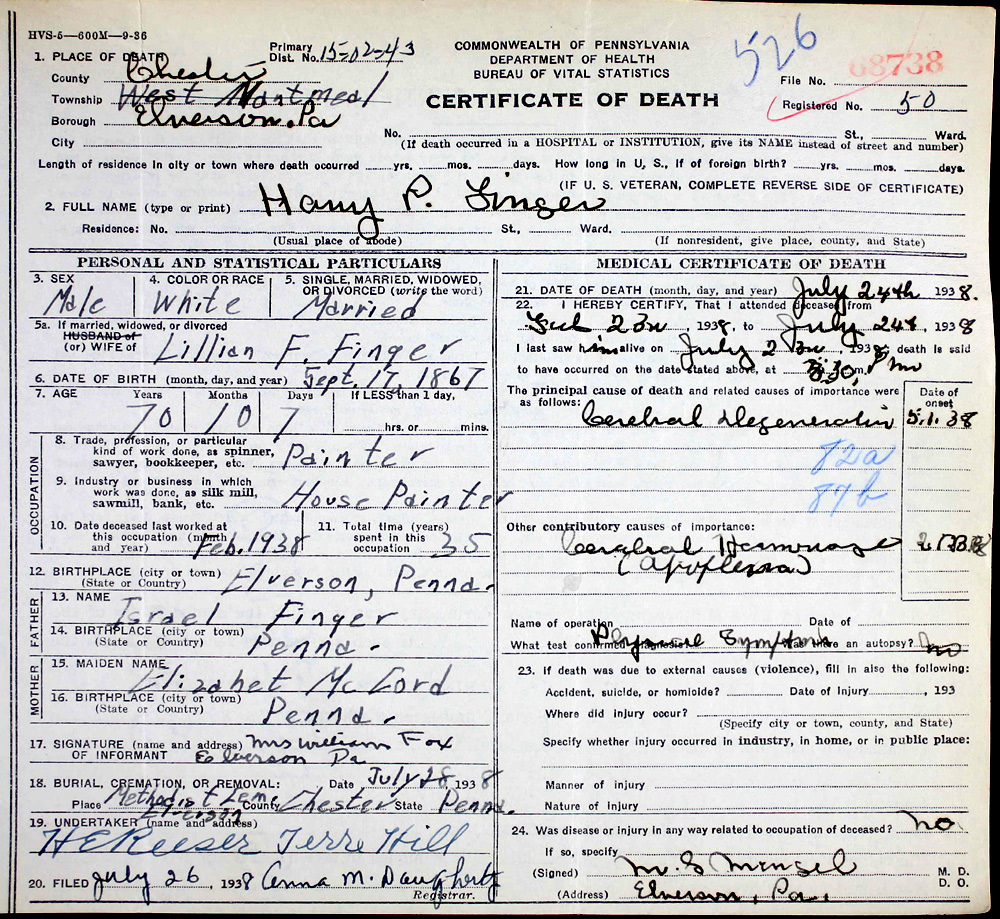 HVS-5—600M—9-36
1. PLACE OF DEATH
County Chester
Township West Nantmeal
Borough Elverson. Pa
City
Primary Dist. No. 15-02-43
COMMONWEALTH OF PENNSYLVANIA
DEPARTMENT OF HEALTH
BUREAU OF VITAL STATISTICS
CERTIFICATE OF DEATH
526
File No. 68738
Registered No. 50
No. St., Ward.
(If death occurred in a HOSPITAL or INSTITUTION, give its NAME instead of street and number)
Length of residence in city or town where death occurred yrs. mos. days. How long in U. S., if of foreign birth? yrs. mos. days.
(IF U. S. VETERAN, COMPLETE REVERSE SIDE OF CERTIFICATE)
2. FULL NAME (type or print) Harry P. Finger
Residence: No. St., Ward.
(Usual place of abode) (If nonresident, give place, county, and State)
PERSONAL AND STATISTICAL PARTICULARS
3. SEX Male
4. COLOR OR RACE White
5. SINGLE, MARRIED, WIDOWED, OR DIVORCED (write the word) Married
5a. If married, widowed, or divorced
HUSBAND of
(or) WIFE of Lillian F. Finger
6. DATE OF BIRTH (month, day, and year) Sept. 17, 1867
7. AGE Years Months Days If LESS than 1 day,
70 10 7 hrs. or mins.
OCCUPATION
8. Trade, profession, or particular kind of work done, as spinner, sawyer, bookkeeper, etc. Painter
9. Industry or business in which work was done, as silk mill, sawmill, bank, etc. House Painter
10. Date deceased last worked at this occupation (month and year) Feb. 1938
11. Total time (years) spent in this occupation 35
12. BIRTHPLACE (city or town) (State or Country) Elverson, Penna.
FATHER
13. NAME Israel Finger
14. BIRTHPLACE (city or town) (State or Country) Penna.
MOTHER
15. MAIDEN NAME Elizabet McCord
16. BIRTHPLACE (city or town) (State or Country) Penna.
17. SIGNATURE (name and address) OF INFORMANT Mrs William Fox
Elverson Pa
18. BURIAL, CREMATION, OR REMOVAL: Date July 28, 1938
Place Methodist Cem. Elverson County Chester State Penna.
19. UNDERTAKER (name and address)
HE Reeser Terre Hill
20. FILED July 26, 1938 Anna M. Daugherty
Registrar.
MEDICAL CERTIFICATE OF DEATH
21. DATE OF DEATH (month, day, and year) July 24th 1938.
22. I HEREBY CERTIFY, That I attended deceased from
, 1938, to July 24, 1938
I last saw him alive on July 23, 1938, death is said
to have occurred on the date stated above, at 8:30 P m.
The principal cause of death and related causes of importance were as follows: Date of onset
Cerebral Degeneration 5.1.38
82a
87b
Other contributory causes of importance:
Cerebral Hemorrhage
(Apoplexia)
Name of operation Date of
What test confirmed diagnosis? Physical Symptoms Was there an autopsy? no
23. If death was due to external causes (violence), fill in also the following:
Accident, suicide, or homicide? Date of Injury , 193
Where did injury occur?
(Specify city or town, county, and State)
Specify whether injury occurred in industry, in home, or in public place:
Manner of injury
Nature of injury
24. Was disease or injury in any way related to occupation of deceased? no
If so, specify
(Signed) M. S Mengel M. D.
D. O.
(Address) Elverson, Pa.